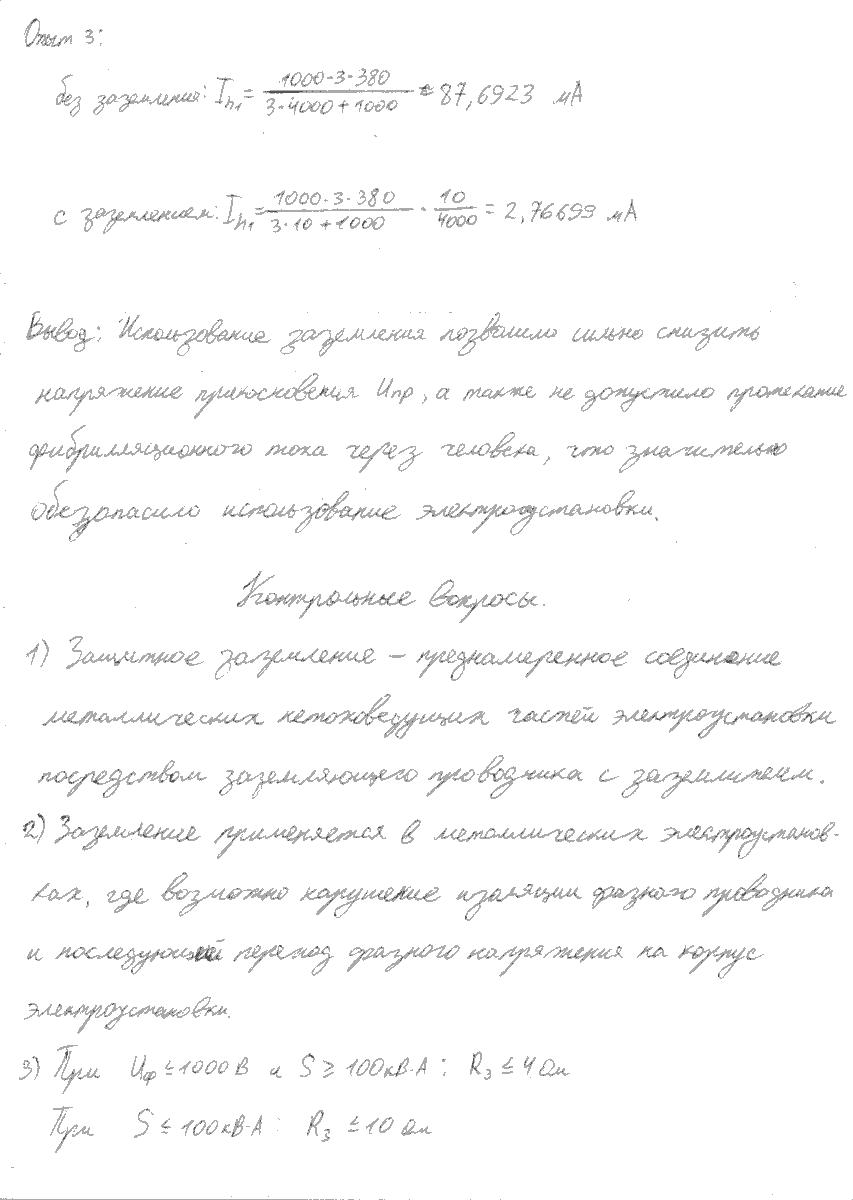 Опыт 3:
без заземления: I_h1 = (1000·3·380)/(3·4000+1000) = 87,6923 мА
с заземлением: I_h1 = (1000·3·380)/(3·10+1000) · 10/4000 = 2,76699 мА
Вывод: Использование заземления позволило сильно снизить
напряжение прикосновения Uпр, а также не допустило протекание
фибрилляционного тока через человека, что значительно
обезопасило использование электроустановки.
Контрольные вопросы.
1) Защитное заземление – преднамеренное соединение
металлических нетоковедущих частей электроустановки
посредством заземляющего проводника с заземлителем.
2) Заземление применяется в металлических электроустанов-
ках, где возможно нарушение изоляции фазного проводника
и последующий переход фазного напряжения на корпус
электроустановки.
3) При Uф ≤ 1000 В и S ≥ 100 кВ·А: Rз ≤ 4 Ом
При S ≤ 100 кВ·А: Rз ≤ 10 Ом